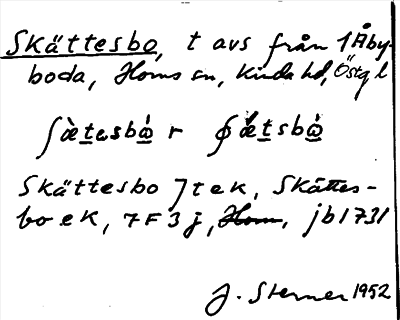 Skättesbo, t avs från 1 Åby-
boda, Horns sn, Kinda hd, Östg l
ʃæ̀te̱sbὼ̱ r ʃæ̀te̱sbὼ̱
Skättesbo Jtek, Skättes-
bo ek, 7F3j, Horn, jb1731
J. Sterner 1952